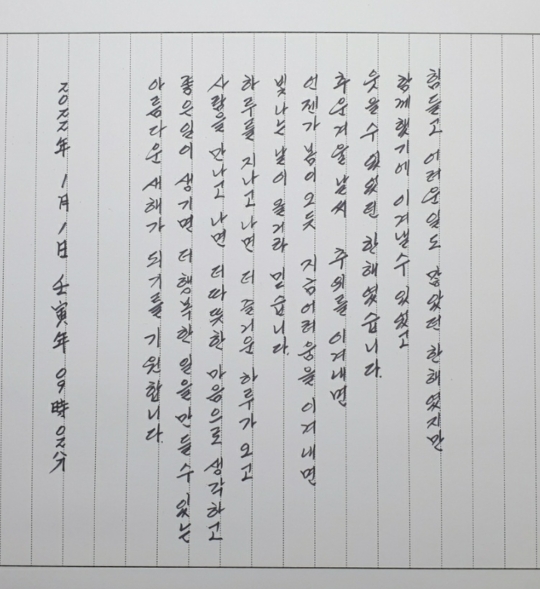 힘들고 어려운일도 많았던 한해였지만
함께했기에 이겨낼수 있었고
웃을수 있었던 한해였습니다.
추운겨울 날씨 추위를 이겨내면
언젠가 봄이오듯 지금어려움을 이겨내면
빛나는 날이 올거라 믿습니다.
하루를 지나고나면 더 즐거운 하루가 오고
사람을 만나고 나면 더 따뜻한 마음으로 생각하고
좋은일이 생기면 더행복한 일을 만들수 있는
아름다운 새해가 되기를 기원합니다.
2022年 1月 1日 壬寅年 09時 02分